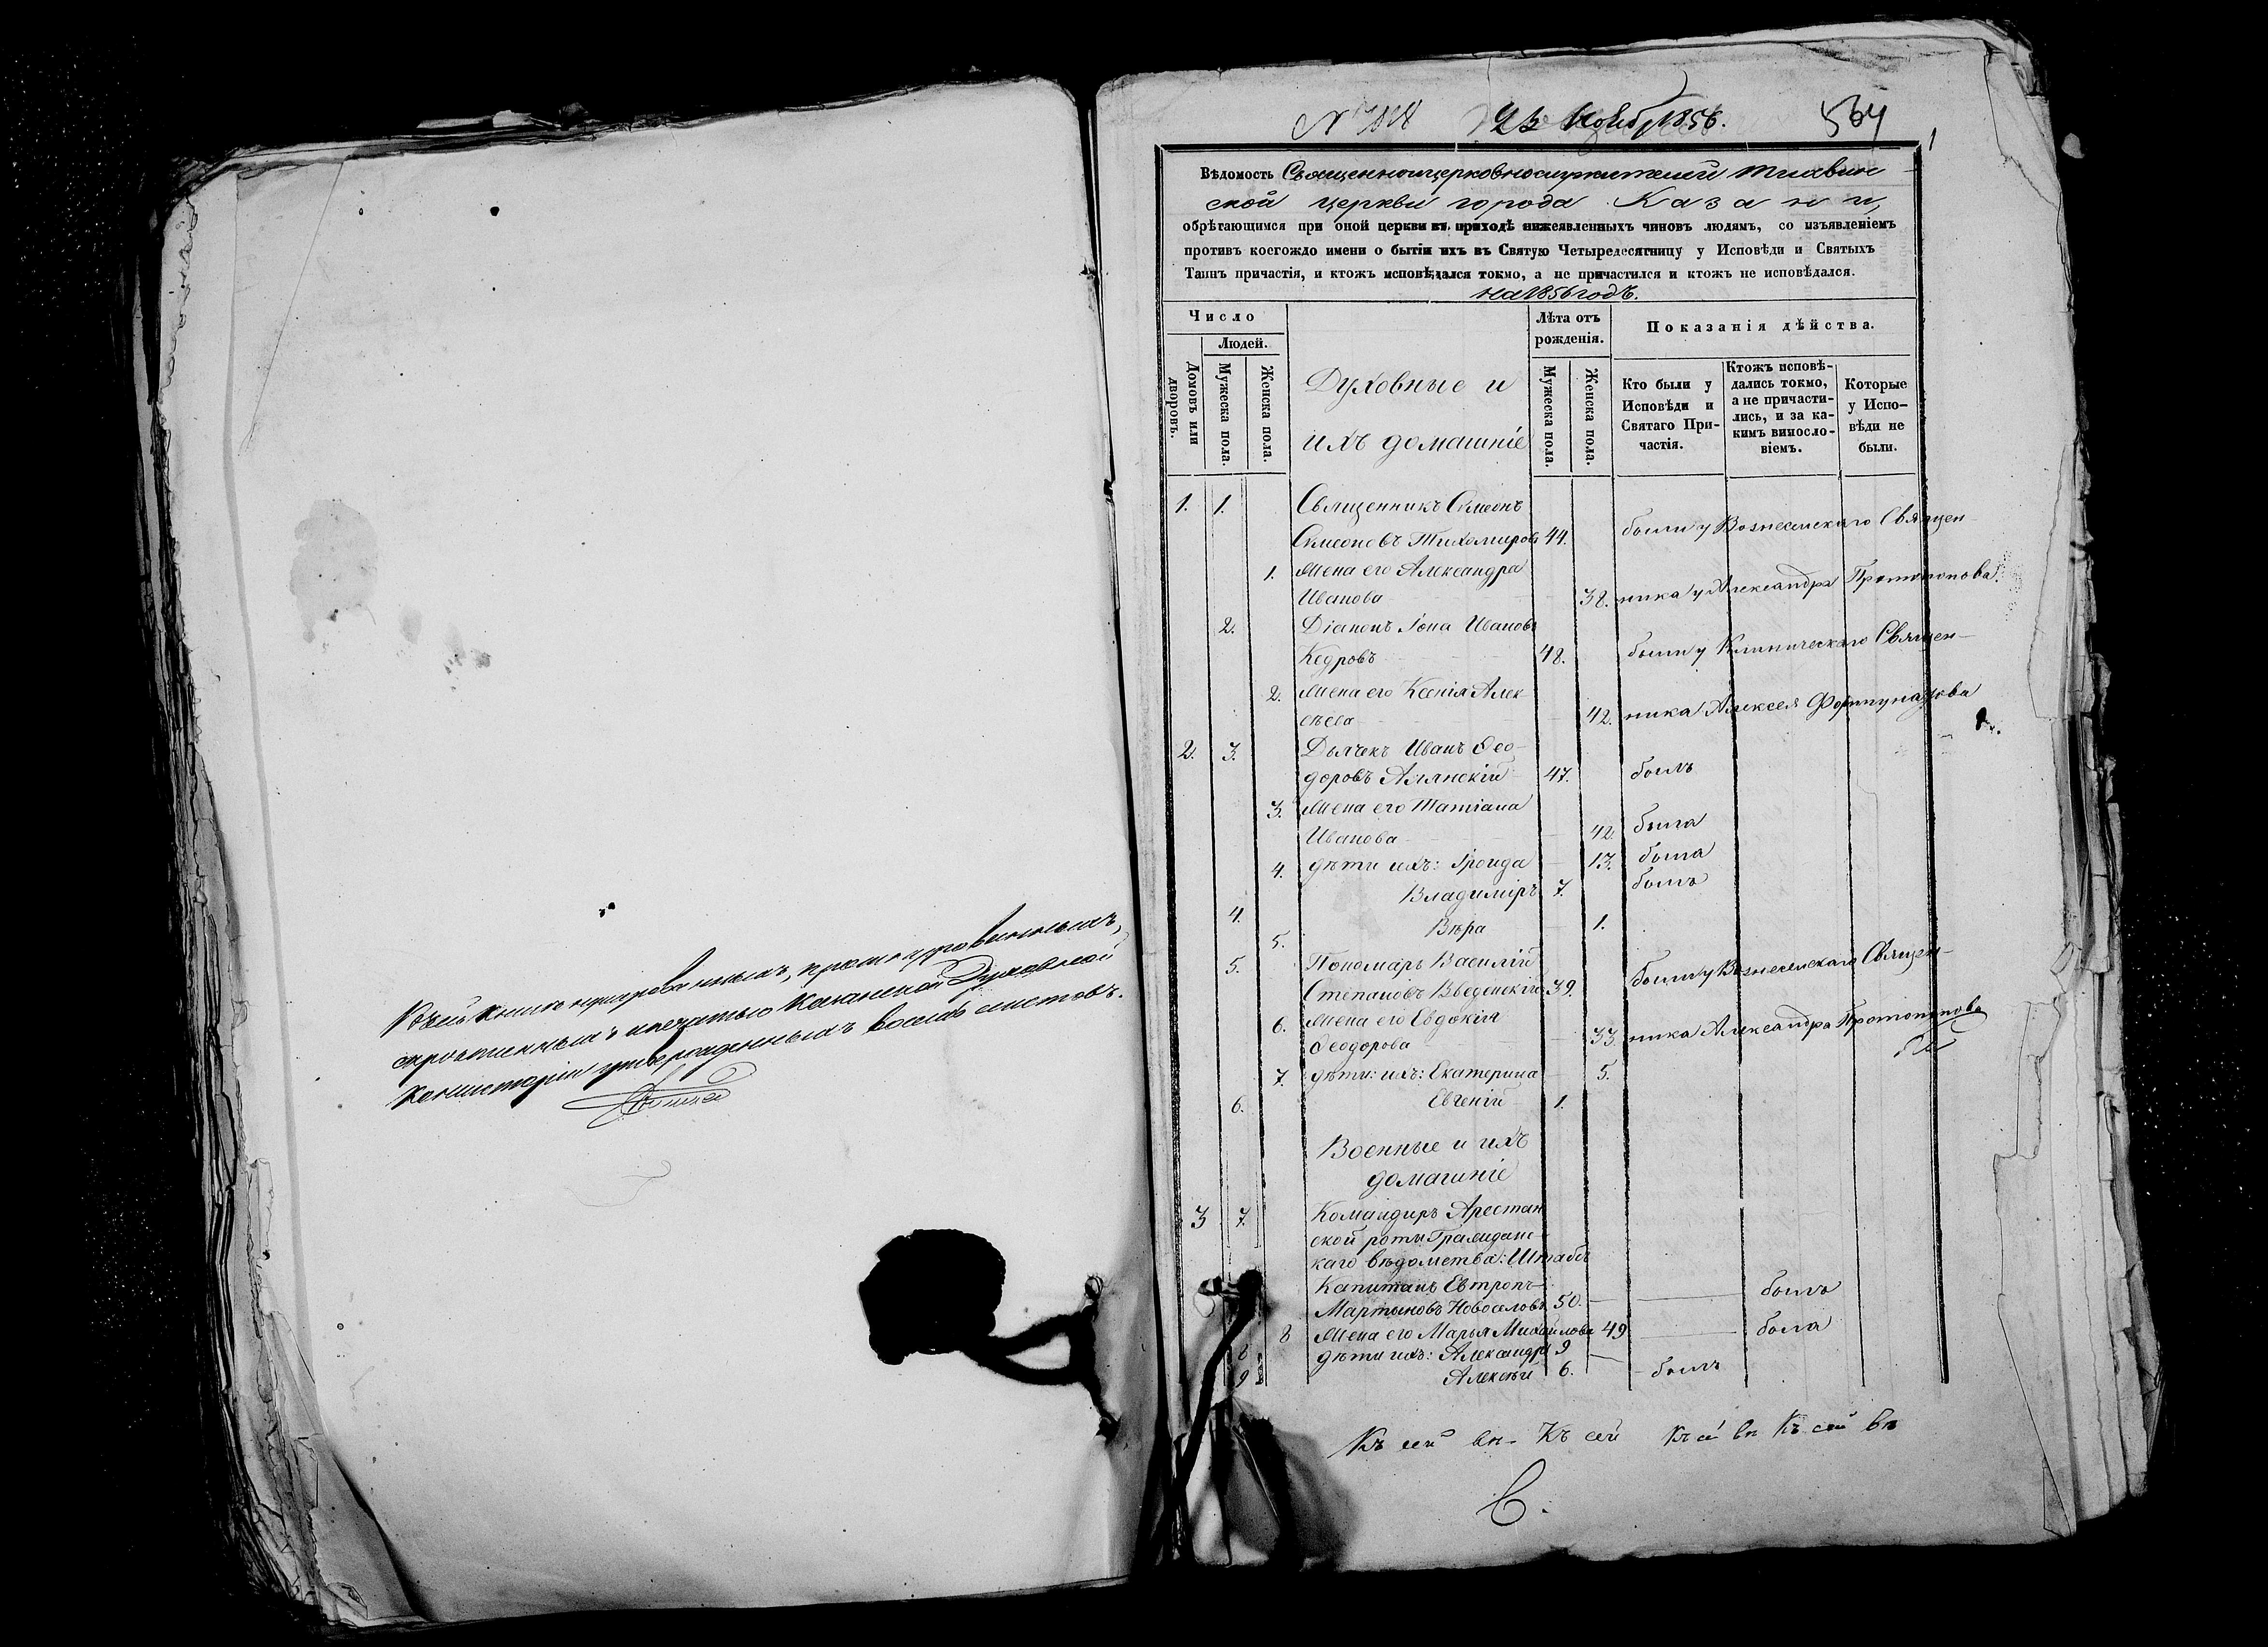 Въ сей книгѣ нумерованныхъ, прошнурованныхъ,
скрѣпленныхъ и печатью Казанской Духовной
Консисторіи утвержденныхъ восемь листовъ.
22 Нояб. 1856.
564
1
Вѣдомость Священноицерковнослужителей Тихвин
ской церкви города Казани,
обрѣтающимся при оной церкви въ приходѣ нижеявленныхъ чиновъ людямъ, со изъявленіемъ
противъ коегождо имени о бытіи ихъ въ Святую Четыредесятницу у Исповѣди и Святыхъ
Таинъ причастія, и ктожъ исповѣдался токмо, а не причастился и ктожъ не исповѣдался.
на 1856 годъ.
Число
Людей.
Домовъ или дворовъ.
Мужеска пола.
Женска пола.
Духовные и
ихъ домашніе
Лѣта отъ
рожденія.
Мужеска пола.
Женска пола.
Показанія дѣйства.
Кто были у
Исповѣди и
Святаго При-
частія.
Ктожъ исповѣ-
дались токмо,
а не причасти-
лись, и за ка-
кимъ винослo-
віемъ.
Которые
у Испо-
вѣди не
были.
1. 1. Священникъ Симеонъ
Симеоновъ Тихомировъ 44. были у Вознесенскаго Священ-
1. Жена его Александра
Иванова 38. ника Александра Протопопова.
2. Діаконъ Іона Ивановъ
Кедровъ 48. были у Клиническаго Священ-
2. Жена его Ксенія Алек
сѣева 42. ника Алексея Фортунатова
2. 3. Дьячекъ Иванъ Ѳео-
доровъ Азлянскій 47. былъ
3. Жена его Татіана
Иванова 42. была
4. дѣти ихъ: Ироида 13. была
4. Владиміръ 7. былъ
5. Вѣра 1.
5. Пономарь Василій
Степановъ Введенскій 39. были у Вознесенскаго Священ-
6. Жена его Евдокія
Ѳеодорова 33. ника Александра Протопопова
7. дѣти: ихъ: Екатерина 5.
6. Евгеній 1.
Военные и ихъ
домашніе
3 7. Командиръ Арестан
ской роты Граждан-
каго вѣдомства: Штабъ
Капитанъ Евтропъ
Мартыновъ Новоселовъ 50. былъ
8 Жена его Марья Михайлова 49 была
8 дѣти ихъ: Александръ 9
9 Алексѣй 6. былъ
Къ сей вѣ Къ сей Къ се вѣ Къ сей вѣ
С.